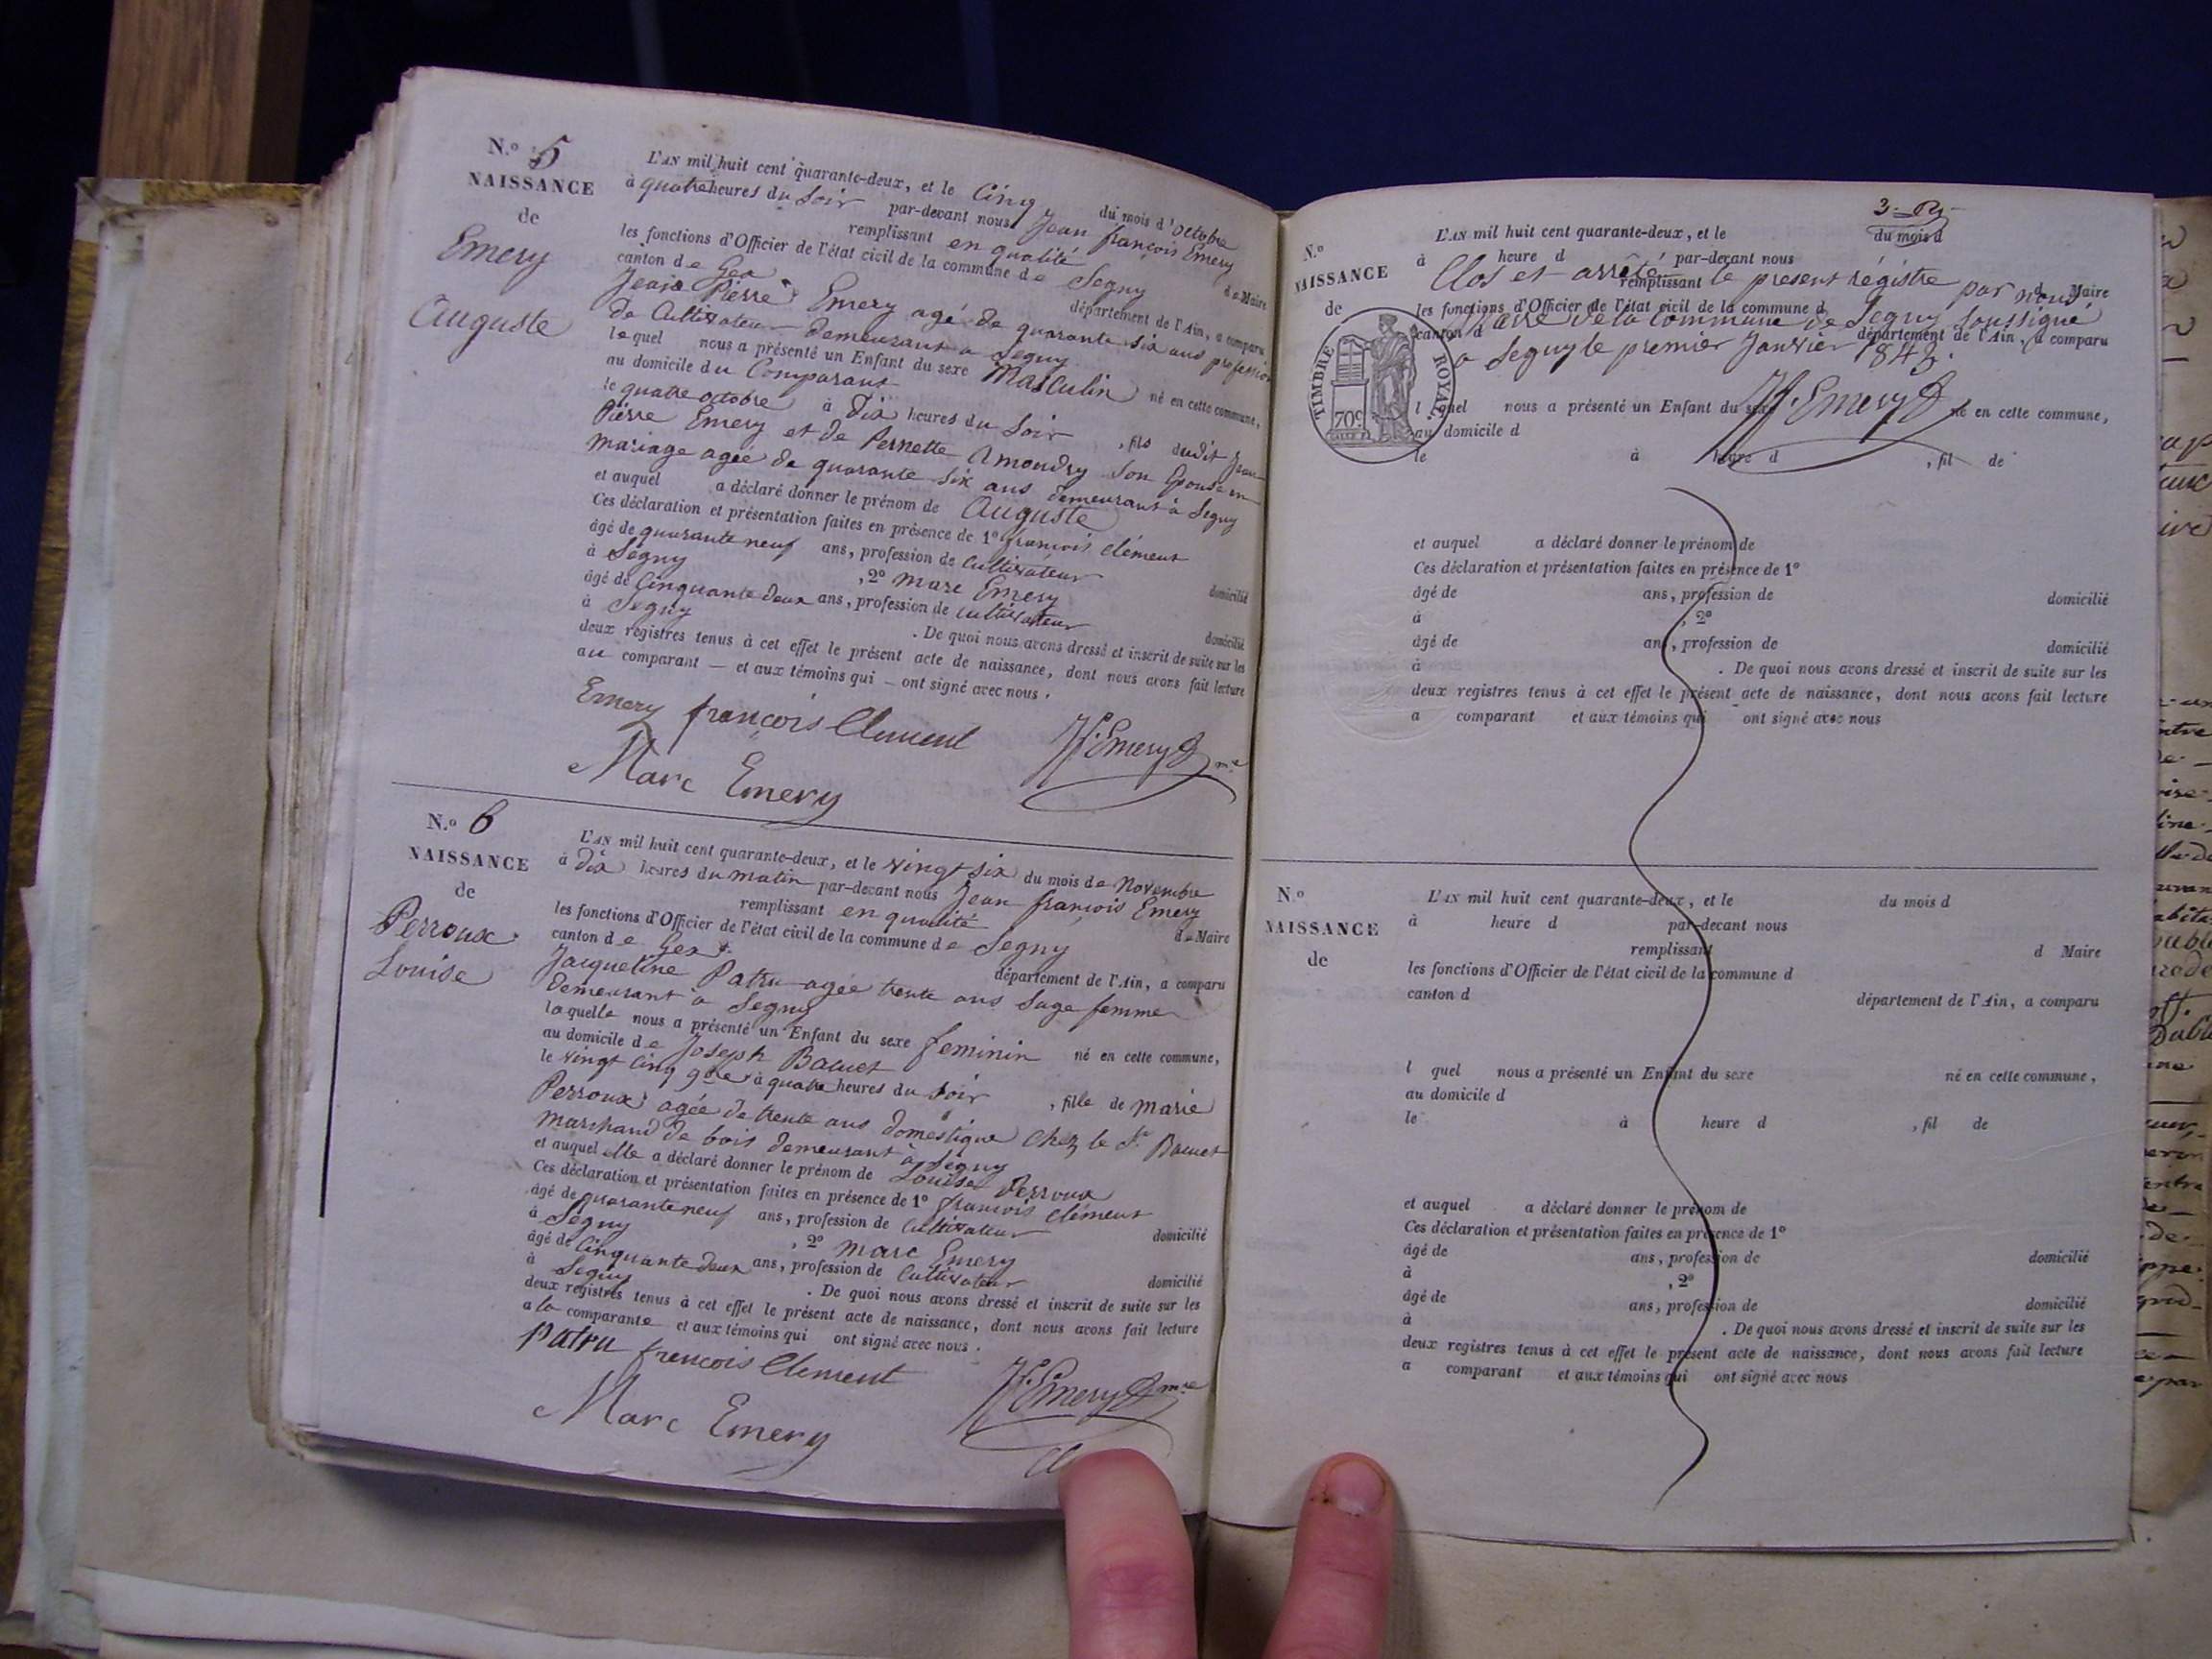 N.o 5
NAISSANCE
de
Emery
Auguste
L'AN mil huit cent quarante-deux, et le Cinq du mois d'Octobre
à quatre heures du Soir par-devant nous Jean françois Emery
remplissant en qualité de Maire
les fonctions d'Officier de l'état civil de la commune de Segny
canton de Gex département de l'Ain, a comparu
Jean Pierre Emery agé de quarante six ans profession
de Cultivateur demeurant a Segny
lequel nous a présenté un Enfant du sexe Masculin né en cette commune,
au domicile du Comparant
le quatre octobre à Dix heures du Soir , fils dudit Jean
Pierre Emery et de Pernette Amoudry Son Epouse en
mariage agée de quarante six ans demeurant à Segny
et auquel a déclaré donner le prénom de Auguste
Ces déclaration et présentation faites en présence de 1o françois Clément
âgé de quarante neuf ans, profession de Cultivateur domicilié
à Segny , 2o Marc Emery
âgé de Cinquante deux ans, profession de Cultivateur domicilié
à Segny . De quoi nous avons dressé et inscrit de suite sur les
deux registres tenus à cet effet le présent acte de naissance, dont nous avons fait lecture
au comparant — et aux témoins qui — ont signé avec nous .
Emery françois Clement
Jf. Emery me
Marc Emery
N.o 6
NAISSANCE
de
Perroux
Louise
L'AN mil huit cent quarante-deux, et le vingt six du mois de Novembre
à Dix heures du matin par-devant nous Jean françois Emery
remplissant en qualité de Maire
les fonctions d'Officier de l'état civil de la commune de Segny
canton de Gex département de l'Ain, a comparu
Jacqueline Patru agée trente ans Sage femme
demeurant a Segny
laquelle nous a présenté un Enfant du sexe feminin né en cette commune,
au domicile de Joseph
le vingt cinq 9bre à quatre heures du Soir , fille de Marie
Perroux agée de trente ans domestique Chez le Sr
Marchand de bois demeurant à Segny
et auquel elle a déclaré donner le prénom de Louise Perroux
Ces déclaration et présentation faites en présence de 1o françois Clément
âgé de quarante neuf ans, profession de Cultivateur domicilié
à Segny , 2o Marc Emery
âgé de Cinquante deux ans, profession de Cultivateur domicilié
à Segny . De quoi nous avons dressé et inscrit de suite sur les
deux registres tenus à cet effet le présent acte de naissance, dont nous avons fait lecture
a la comparante et aux témoins qui ont signé avec nous .
Patru françois Clement
Jf. Emery me
Marc Emery
N.o
NAISSANCE
de
L'AN mil huit cent quarante-deux, et le du mois d
à heure d par-devant nous
Clos et arrêté le present régistre par nous
remplissant d Maire
les fonctions d'Officier de l'état civil de la commune d
Maire de la Commune de Segny Soussigné
canton d département de l'Ain, a comparu
a Segny le premier Janvier 1843.
TIMBRE ROYAL
70c
Jf. Emery
l quel nous a présenté un Enfant du sexe né en cette commune,
au domicile d
le à heure d , fil de
et auquel a déclaré donner le prénom de
Ces déclaration et présentation faites en présence de 1o
âgé de ans, profession de domicilié
à , 2o
âgé de ans, profession de domicilié
à . De quoi nous avons dressé et inscrit de suite sur les
deux registres tenus à cet effet le présent acte de naissance, dont nous avons fait lecture
a comparant et aux témoins qui ont signé avec nous
N.o
NAISSANCE
de
L'AN mil huit cent quarante-deux, et le du mois d
à heure d par-devant nous
remplissant d Maire
les fonctions d'Officier de l'état civil de la commune d
canton d département de l'Ain, a comparu
l quel nous a présenté un Enfant du sexe né en cette commune,
au domicile d
le à heure d , fil de
et auquel a déclaré donner le prénom de
Ces déclaration et présentation faites en présence de 1o
âgé de ans, profession de domicilié
à , 2o
âgé de ans, profession de domicilié
à . De quoi nous avons dressé et inscrit de suite sur les
deux registres tenus à cet effet le présent acte de naissance, dont nous avons fait lecture
a comparant et aux témoins qui ont signé avec nous